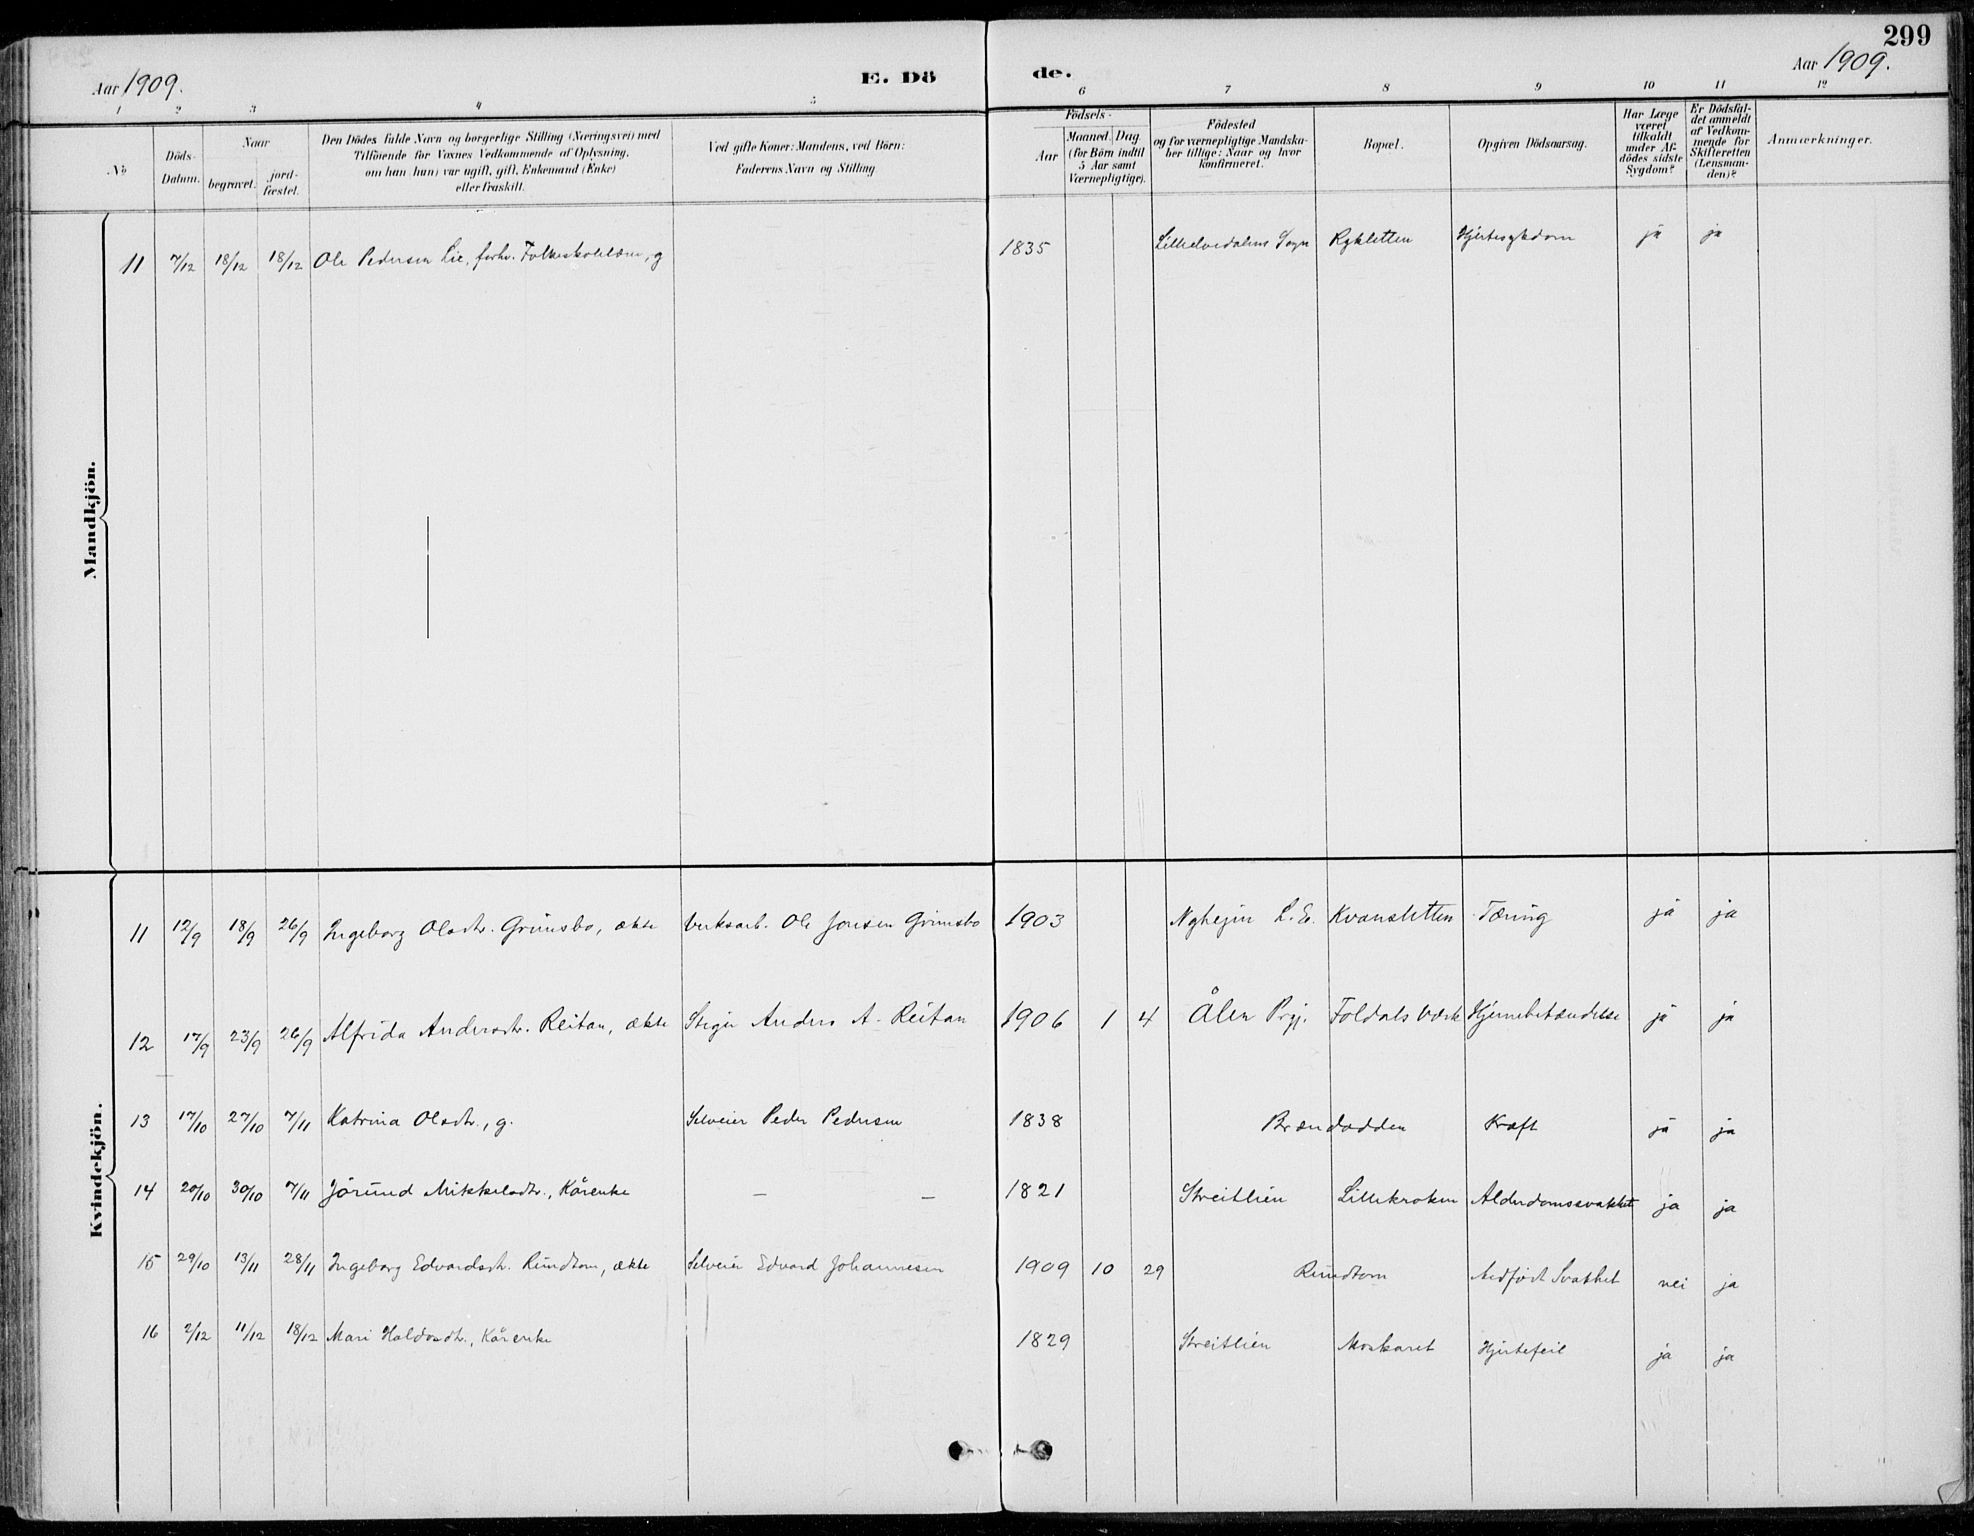 299
Aar 1909.
E. Dö
de.
Aar 1909.
1 2 3 4 5 6 7 8 9 10 11 12
No
Döds-
Datum.
Naar
begravet.
jord-
fæstet.
Den Dödes fulde Navn og borgerlige Stilling (Næringsvei) med
Tilföiende for Voxnes Vedkommende af Oplysning,
om han (hun) var ugift, gift, Enkemand (Enke)
eller fraskilt.
Ved gifte Koner: Mandens, ved Börn:
Faderens Navn og Stilling
Födsels-
Aar
Maaned. Dag
(for Börn indtil
5 Aar samt
Værnepligtige).
Födested
og for værnepligtige Mandska-
ber tillige: Naar og hvor
konfirmeret.
Bopæl.
Opgiven Dödsaarsag.
Har Læge
været
tilkaldt
under Af-
dödes sidste
Sygdom?
Er Dödsfal-
det anmeldt
af Vedkom-
mende for
Skifteretten
(Lensman-
den)?
Anmærkninger.
Mandkjön.
11 7/12 18/12 18/12 Ole Pedersen Lie, forhv. Folkeskolelærer, g 1835 Lilleelvedalens Sogn Hjertesykdom ja ja
Kvindekjön.
11 12/9 18/9 26/9 Ingeborg Olsdtr. Grimsbo, ækte Verksarb. Ole Jonsen Grimsbo 1903 L. E. Kvansletten Tæring ja ja
12 17/9 23/9 26/9 Alfrida Andersdtr. Reitan, ækte Stiger Anders A. Reitan 1906 1 4 Ålen Prgj. Foldals Værk Hjernebetændelse ja ja
13 17/10 27/10 7/11 Katrina Olsdtr., g. Selveier Peder Pedersen 1838 Brændodden Kræft ja ja
14 20/10 30/10 7/11 Jörund Mikkelsdtr., Kårenke — — 1821 Streitlien Lillekroken Alderdomssvakhet ja ja
15 29/10 13/11 28/11 Ingeborg Edvardsdtr. Rundtom, ækte Selveier Edvard Johannesen 1909 10 29 Rundtom Medfödt Svakhet nei ja
16 2/12 11/12 18/12 Mari Haldosdtr., Kårenke 1829 Streitlien Moskaret Hjertefeil ja ja